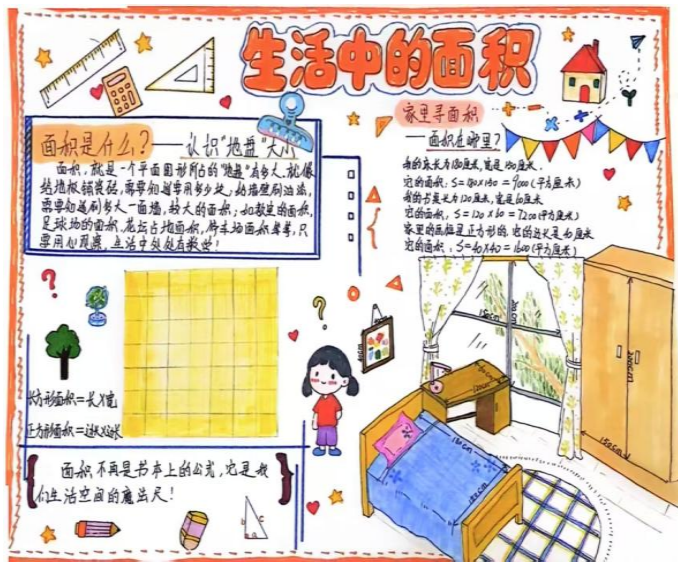 生活中的面积
面积是什么?——认识“地盘”大小
面积,就是一个平面图形所占的“地盘”有多大,就像
给地板铺瓷砖,需要知道要用多少块;给墙壁刷油漆,
需要知道刷多大一面墙,较大的面积;如教室的面积,
足球场的面积,花坛占地面积,
用心观察,生活中处处有数学!
家里寻面积
——面积在哪里?
我的床长为180厘米,宽是
它的面积:S= = (平方厘米)
我的书桌长为120厘米,宽是60厘米
它的面积:S=120×60=7200(平方厘米)
家里的画框是正方形的,它的边长是40厘米
它的面积:S=40×40=1600(平方厘米)
长方形面积=长×宽
正方形面积=边长×边长
面积不再是书本上的公式,它是我
们生活空间的魔法尺!
?
?
150cm
200cm
150cm
120cm
180cm
a
b
c